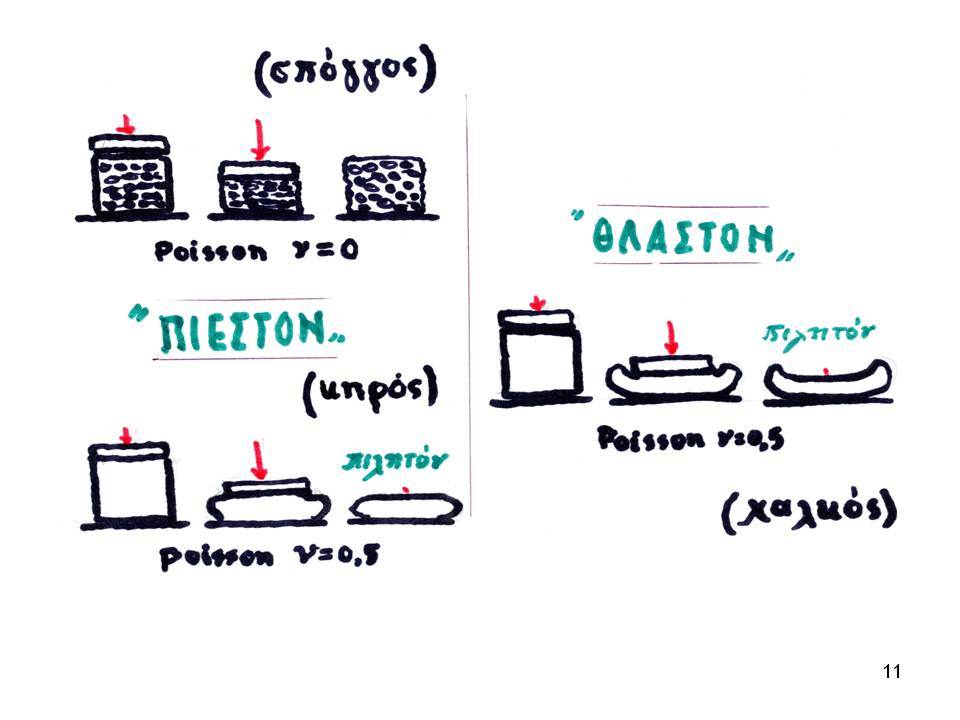 (σπόγγος)
Poisson ν=0
"ΠΙΕΣΤΟΝ"
(κηρός)
πιλητόν
Poisson ν=0,5
"ΘΛΑΣΤΟΝ"
πιλητόν
Poisson ν=0,5
(χαλκός)
11